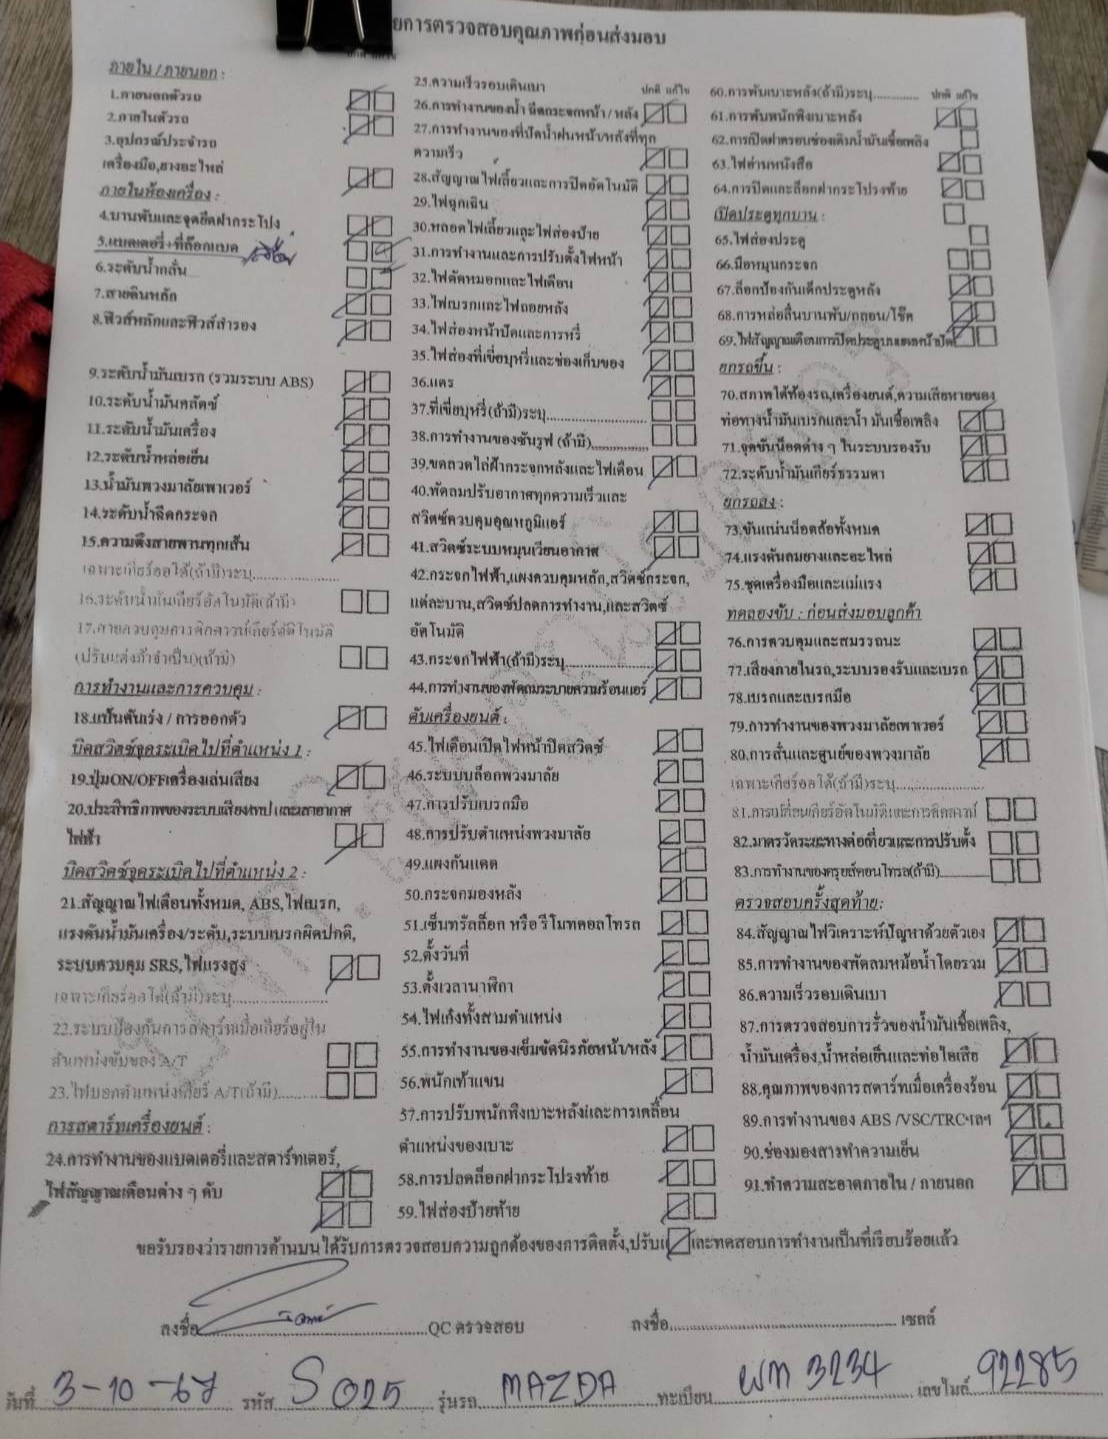 ยการตรวจสอบคุณภาพก่อนส่งมอบ
ภายใน / ภายนอก :
1.ภายนอกตัวรถ
2.ภายในตัวรถ
3.อุปกรณ์ประจำรถ
เครื่องมือ,ยางอะไหล่
ภายในห้องเครื่อง :
4.บานพับและจุดยึดฝากระโปง
5.แบตเตอรี่+ที่ล๊อกแบต
6.ระดับน้ำกลั่น
7.สายดินหลัก
8.ฟิวส์หลักและฟิวส์สำรอง
9.ระดับน้ำมันเบรก (รวมระบบ ABS)
10.ระดับน้ำมันคลัตซ์
11.ระดับน้ำมันเครื่อง
12.ระดับน้ำหล่อเย็น
13.น้ำมันพวงมาลัยเพาเวอร์
14.ระดับน้ำฉีดกระจก
15.ความตึงสายพานทุกเส้น
เฉพาะเกียร์ออโต้(ถ้ามี)ระบุ....................
16.ระดับน้ำมันเกียร์อัตโนมัติ(ถ้ามี)
17.สายควบคุมการคิกดาวน์เกียร์อัตโนมัติ
(ปรับแต่งถ้าจำเป็น)(ถ้ามี)
การทำงานและการควบคุม :
18.แป้นคันเร่ง / การออกตัว
บิดสวิตช์จุดระเบิดไปที่ตำแหน่ง 1 :
19.ปุ่มON/OFFเครื่องเล่นเสียง
20.ประสิทธิภาพของระบบเสียงเทป และเสาอากาศ
ไฟฟ้า
บิดสวิตช์จุดระเบิดไปที่ตำแหน่ง 2 :
21.สัญญาณไฟเตือนทั้งหมด, ABS,ไฟเบรก,
แรงดันน้ำมันเครื่อง/ระดับ,ระบบเบรกผิดปกติ,
ระบบควบคุม SRS,ไฟแรงสูง
เฉพาะเกียร์ออโต้(ถ้ามี)ระบุ....................
22.ระบบป้องกันการสตาร์ทเมื่อเกียร์อยู่ใน
ตำแหน่งขับของ A/T
23.ไฟบอกตำแหน่งเกียร์ A/T(ถ้ามี)..........
การสตาร์ทเครื่องยนต์ :
24.การทำงานของแบตเตอรี่และสตาร์ทเตอร์,
ไฟสัญญาณเตือนต่าง ๆ ดับ
25.ความเร็วรอบเดินเบา
ปกติ แก้ไข
26.การทำงานของน้ำ ฉีดกระจกหน้า / หลัง
27.การทำงานของที่ปัดน้ำฝนหน้า/หลังที่ทุก
ความเร็ว
28.สัญญาณไฟเลี้ยวและการปิดอัตโนมัติ
29.ไฟฉุกเฉิน
30.หลอดไฟเลี้ยวและไฟส่องป้าย
31.การทำงานและการปรับตั้งไฟหน้า
32.ไฟตัดหมอกและไฟเตือน
33.ไฟเบรกและไฟถอยหลัง
34.ไฟส่องหน้าปัดและการหรี่
35.ไฟส่องที่เขี่ยบุหรี่และช่องเก็บของ
36.แตร
37.ที่เขี่ยบุหรี่(ถ้ามี)ระบุ....................
38.การทำงานของซันรูฟ (ถ้ามี)...............
39.ขดลวดไล่ฝ้ากระจกหลังและไฟเตือน
40.พัดลมปรับอากาศทุกความเร็วและ
สวิตช์ควบคุมอุณหภูมิแอร์
41.สวิตช์ระบบหมุนเวียนอากาศ
42.กระจกไฟฟ้า,แผงควบคุมหลัก,สวิตช์กระจก,
แต่ละบาน,สวิตช์ปลดการทำงาน,และสวิตช์
อัตโนมัติ
43.กระจกไฟฟ้า(ถ้ามี)ระบุ....................
44.การทำงานของพัดลมระบายความร้อนแอร์
ดับเครื่องยนต์ :
45.ไฟเตือนเปิดไฟหน้าปิดสวิตช์
46.ระบบบล็อกพวงมาลัย
47.การปรับเบรกมือ
48.การปรับตำแหน่งพวงมาลัย
49.แผงกันแดด
50.กระจกมองหลัง
51.เซ็นทรัลล็อก หรือ รีโมทคอลโทรล
52.ตั้งวันที่
53.ตั้งเวลานาฬิกา
54.ไฟเก๋งทั้งสามตำแหน่ง
55.การทำงานของเข็มขัดนิรภัยหน้า/หลัง
56.พนักเท้าแขน
57.การปรับพนักพิงเบาะหลังและการเคลื่อน
ตำแหน่งของเบาะ
58.การปลดล็อกฝากระโปรงท้าย
59.ไฟส่องป้ายท้าย
60.การพับเบาะหลัง(ถ้ามี)ระบุ..............
ปกติ แก้ไข
61.การพับพนักพิงเบาะหลัง
62.การเปิดฝาครอบช่องเติมน้ำมันเชื้อเพลิง
63.ไฟอ่านหนังสือ
64.การปิดและล็อกฝากระโปรงท้าย
เปิดประตูทุกบาน :
65.ไฟส่องประตู
66.มือหมุนกระจก
67.ล็อกป้องกันเด็กประตูหลัง
68.การหล่อลื่นบานพับ/กลอน/โช๊ค
69.ไฟสัญญาณเตือนการปิดประตูบนแผงหน้าปัด
ยกรถขึ้น :
70.สภาพใต้ท้องรถ,เครื่องยนต์,ความเสียหายของ
ท่อทางน้ำมันเบรกและน้ำ มันเชื้อเพลิง
71.จุดขันน็อตต่าง ๆ ในระบบรองรับ
72.ระดับน้ำมันเกียร์ธรรมดา
ยกรถลง :
73.ขันแน่นน็อตล้อทั้งหมด
74.แรงดันลมยางและอะไหล่
75.ชุดเครื่องมือและแม่แรง
ทดลองขับ : ก่อนส่งมอบลูกค้า
76.การควบคุมและสมรรถนะ
77.เสียงภายในรถ,ระบบรองรับและเบรก
78.เบรกและเบรกมือ
79.การทำงานของพวงมาลัยเพาเวอร์
80.การสั่นและศูนย์ของพวงมาลัย
เฉพาะเกียร์ออโต้(ถ้ามี)ระบุ....................
81.การเปลี่ยนเกียร์อัตโนมัติและการคิกดาวน์
82.มาตรวัดระยะทางต่อเที่ยวและการปรับตั้ง
83.การทำงานของครุยส์คอนโทรล(ถ้ามี)...........
ตรวจสอบครั้งสุดท้าย:
84.สัญญาณไฟวิเคราะห์ปัญหาด้วยตัวเอง
85.การทำงานของพัดลมหม้อน้ำโดยรวม
86.ความเร็วรอบเดินเบา
87.การตรวจสอบการรั่วของน้ำมันเชื้อเพลิง,
น้ำมันเครื่อง,น้ำหล่อเย็นและท่อไอเสีย
88.คุณภาพของการสตาร์ทเมื่อเครื่องร้อน
89.การทำงานของ ABS /VSC/TRCฯลฯ
90.ช่องมองสารทำความเย็น
91.ทำความสะอาดภายใน / ภายนอก
ขอรับรองว่ารายการด้านบนได้รับการตรวจสอบความถูกต้องของการติดตั้ง,ปรับแ และทดสอบการทำงานเป็นที่เรียบร้อยแล้ว
ลงชื่อ........................................QC ตรวจสอบ
ลงชื่อ........................................เซลล์
วันที่ 3-10-67 รหัส S025 รุ่นรถ MAZDA ทะเบียน ผท 3234 เลขไมล์ 92285